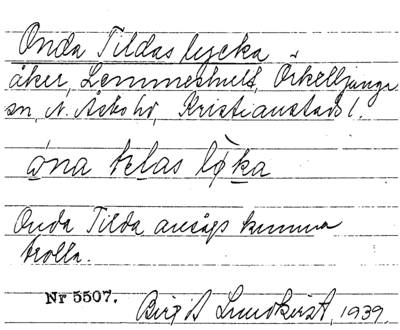 Onda Tildas lycka
åker, Lemmeshult, Örkelljunga
sn, N. Åsbo hd, Kristianstads l.
òna telas lø̀ka
Onda Tilda ansågs kunna
trolla.
Nr 5507. Birgit Lundkvist, 1939.